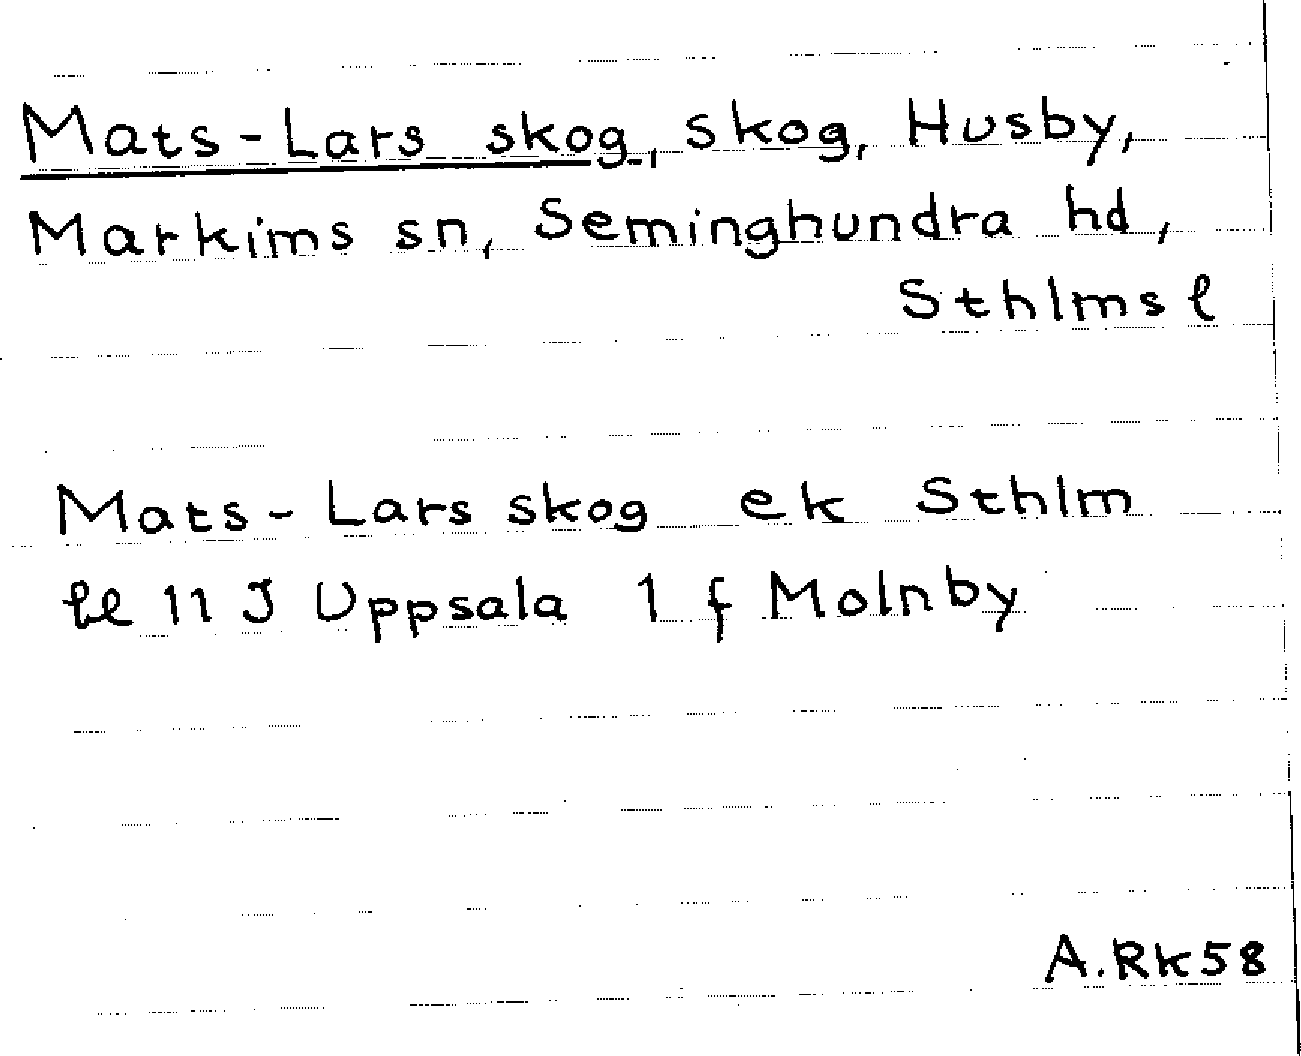 Mats-Lars skog, skog, Husby,
Markims sn, Seminghundra hd,
Sthlms l
Mats-Lars skog ek Sthlm
bl 11 J Uppsala 1 f Molnby
A.RK58